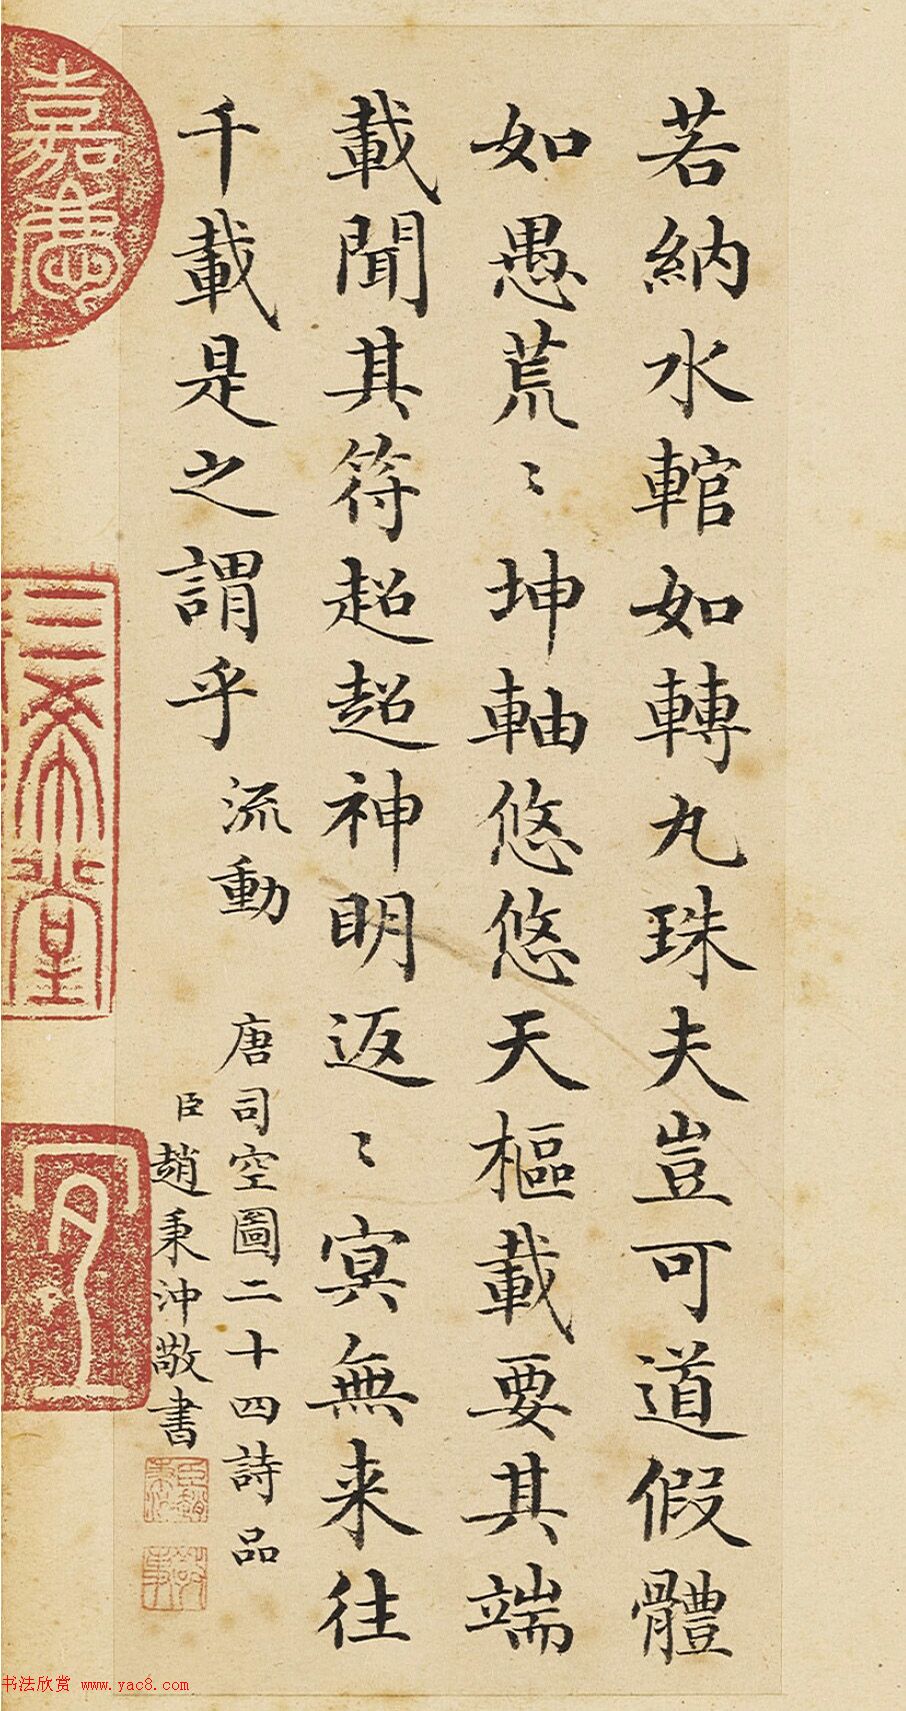 若納水輨如轉丸珠夫豈可道假體
如愚荒〻坤軸悠悠天樞載要其端
載聞其符超超神眀返〻冥無来往
千載是之謂乎 流動
唐司空圖二十四詩品
臣趙秉沖敬書
嘉慶
三希堂
宜
书法欣赏 www.yac8.com